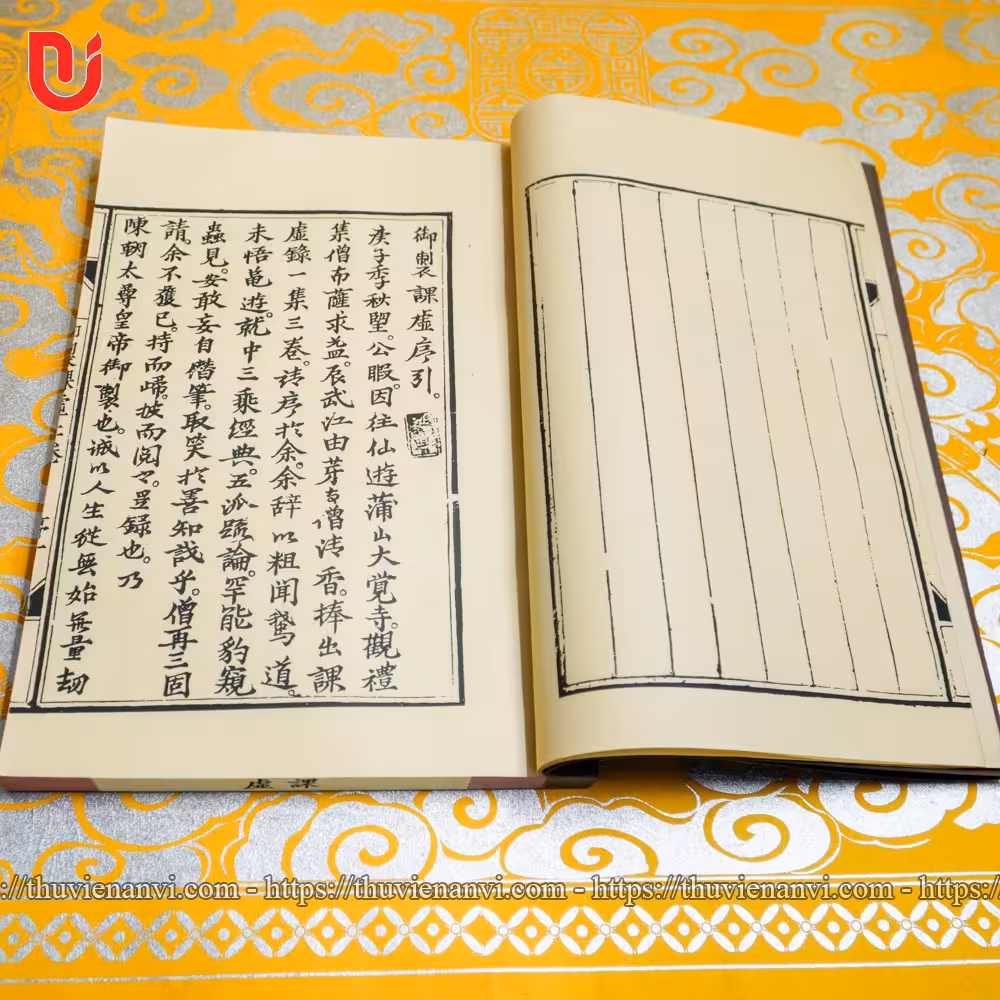 御製課虛序引。
庚子季秋望。公暇。因往仙遊蒲山大覚寺。觀禮
集僧布薩求益。辰武江由芽僧清香。捧出課
虛錄一集三卷。請序扵余。余辞以粗聞鷲道。
未悟黽遊。就中三乘經典。五派䟽論。罕能豹窺
蟲見。安敢妄自僭筆。取笑扵善知哉乎。僧再三固
請。余不獲已。持而啼。披而閱之。是錄也。乃
陳朝太尊皇帝御製也。誠以人生從無始無量劫
課虛
https://thuvienanvi.com - https://thuvienanvi.com - https://thuvienanvi.com - https://thuvienanvi.com